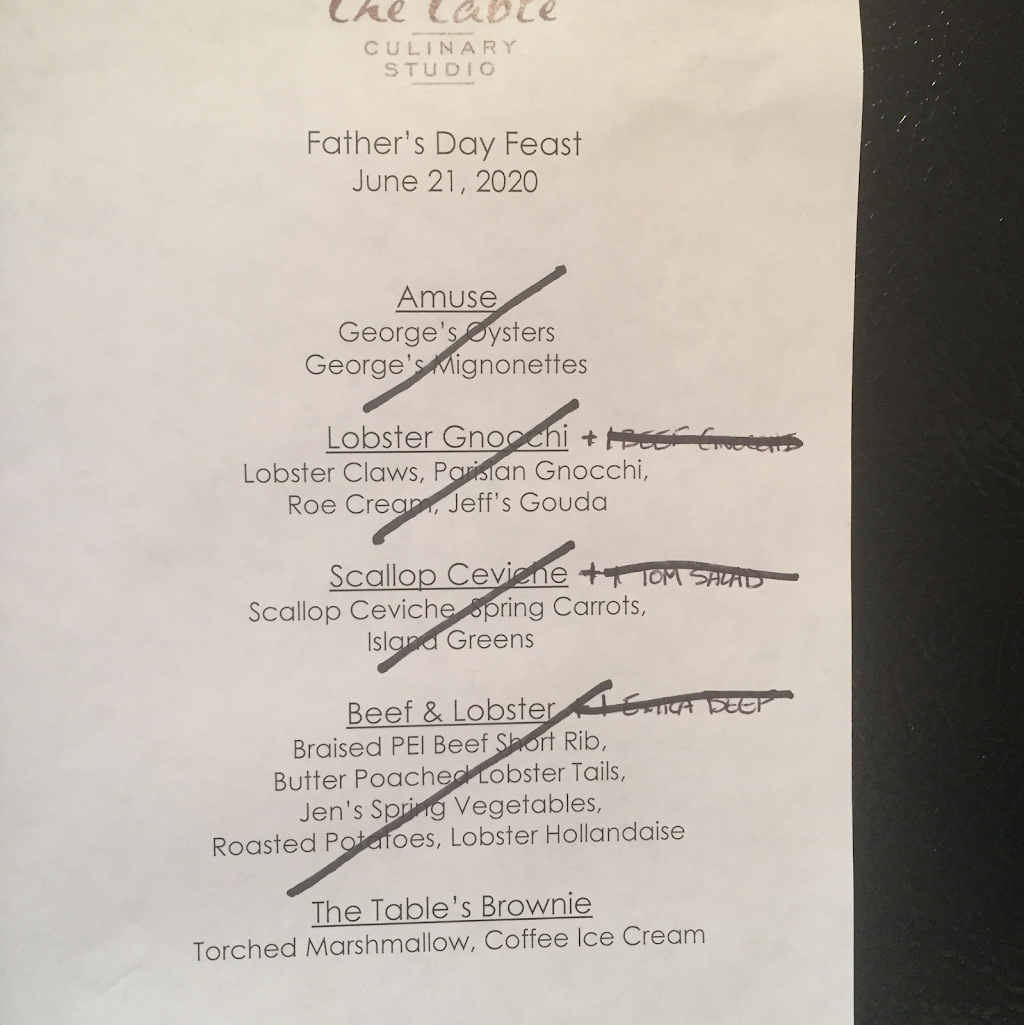 the table
CULINARY
STUDIO
Father's Day Feast
June 21, 2020
Amuse
George's Oysters
George's Mignonettes
Lobster Gnocchi + 1 BEEF GNOCCHI
Lobster Claws, Parisian Gnocchi,
Roe Cream, Jeff's Gouda
Scallop Ceviche + 1 TOM SALAD
Scallop Ceviche, Spring Carrots,
Island Greens
Beef & Lobster + 1 EXTRA BEEF
Braised PEI Beef Short Rib,
Butter Poached Lobster Tails,
Jen's Spring Vegetables,
Roasted Potatoes, Lobster Hollandaise
The Table's Brownie
Torched Marshmallow, Coffee Ice Cream